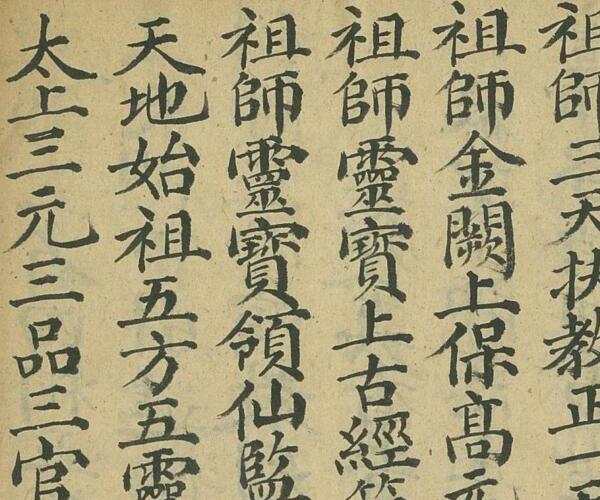 祖師三天扶教正一
祖師金闕上保高元
祖師靈寶上古經
祖師靈寶領仙監
天地始祖五方五靈
太上三元三品三官